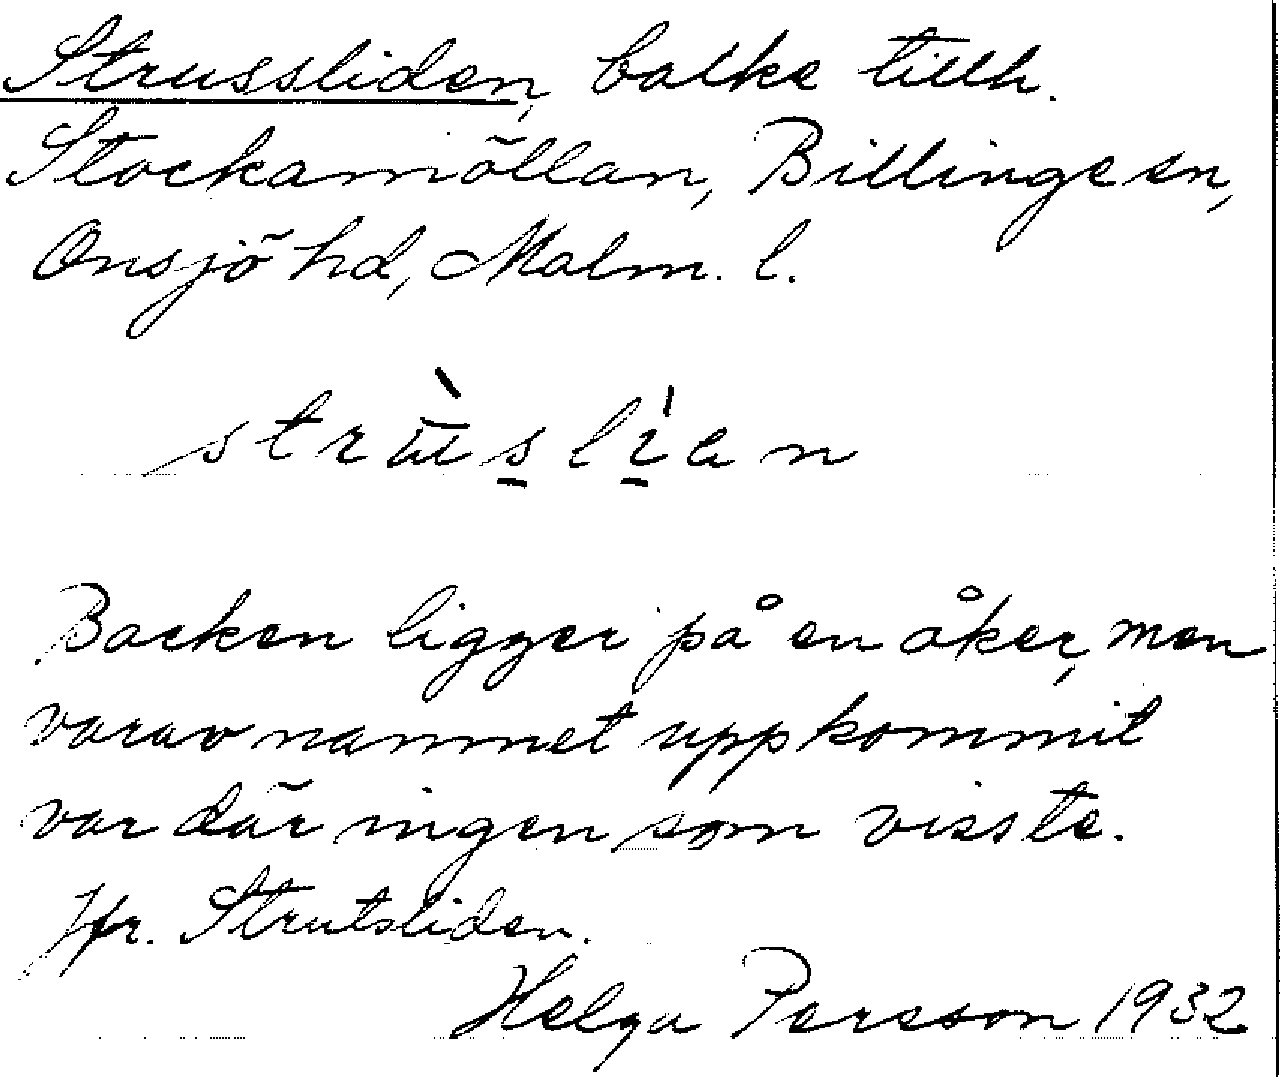 Strussliden, balke tillh.
Stockamöllan, Billinge sn,
Onsjö hd, Malm. l.
strūs lian
Backen ligger på en åker, men
varav namnet uppkommit
var där ingen som visste.
Jfr. Strutsliden.
Helga Persson 1932